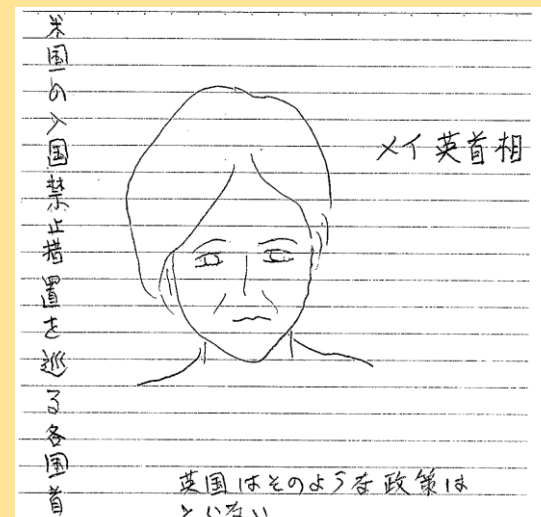 米国の入国禁止措置を巡る各国首
メイ英首相
英国はそのような政策は
とらない